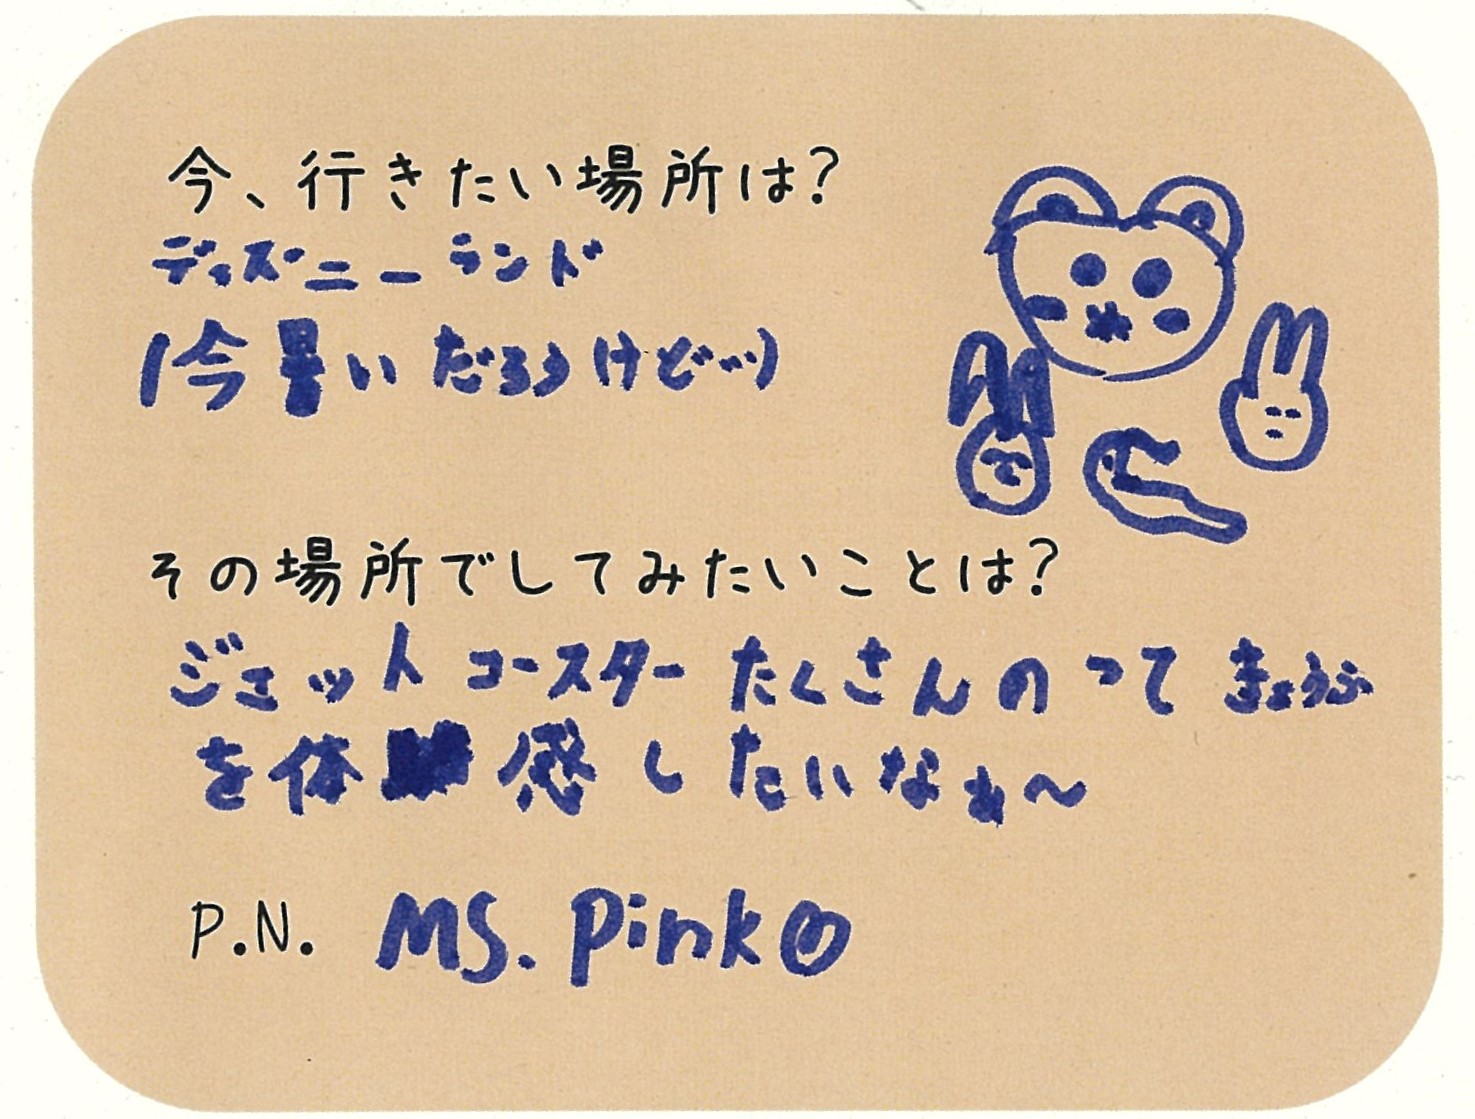 今、行きたい場所は?
ディズニーランド
(今暑いだろうけど…)
その場所でしてみたいことは?
ジェットコースターたくさんのって きょうふ
を体感したいなぁ〜
P.N. MS. Pinko